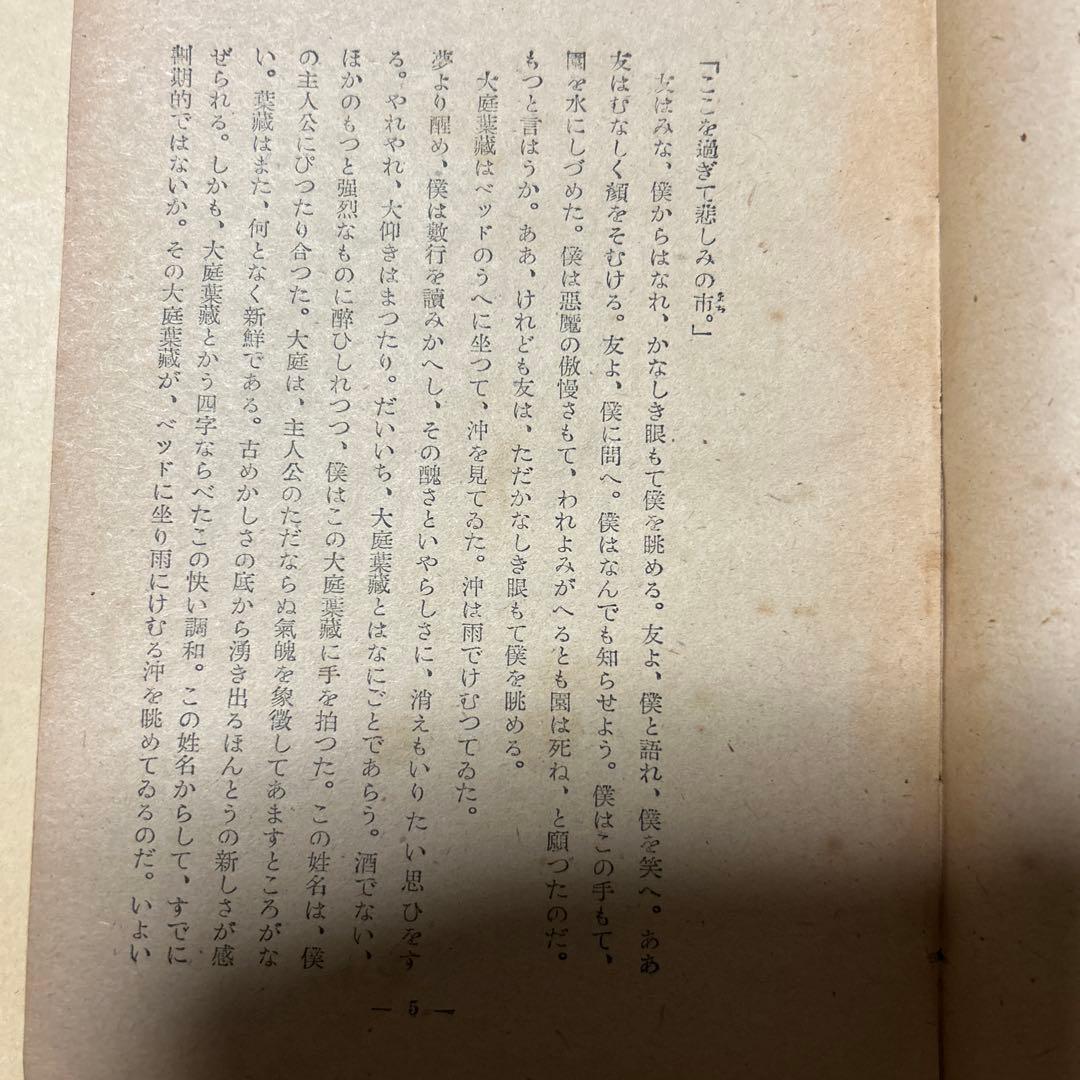 「ここを過ぎて悲しみの市。」
まち
友はみな、僕からはなれ、かなしき眼もて僕を眺める。友よ、僕と語れ、僕を笑へ。ああ
友はむなしく顏をそむける。友よ、僕に問へ。僕はなんでも知らせよう。僕はこの手もて、
園を水にしづめた。僕は惡魔の傲慢さもて、われよみがへるとも園は死ね、と願つたのだ。
もつと言はうか。ああ、けれども友は、ただかなしき眼もて僕を眺める。
大庭葉藏はベッドのうへに坐つて、沖を見てゐた。沖は雨でけむつてゐた。
夢より醒め、僕は數行を讀みかへし、その醜さといやらしさに、消えもいりたい思ひをす
る。やれやれ、大仰きはまつたり。だいいち、大庭葉藏とはなにごとであらう。酒でない、
ほかのもつと强烈なものに醉ひしれつつ、僕はこの大庭葉藏に手を拍つた。この姓名は、僕
の主人公にぴつたり合つた。大庭は、主人公のただならぬ氣魄を象徵してあますところがな
い。葉藏はまた、何となく新鮮である。古めかしさの底から湧き出るほんとうの新しさが感
ぜられる。しかも、大庭葉藏とかう四字ならべたこの快い調和。この姓名からして、すでに
劃期的ではないか。その大庭葉藏が、ベッドに坐り雨にけむる沖を眺めてゐるのだ。いよい
— 5 —